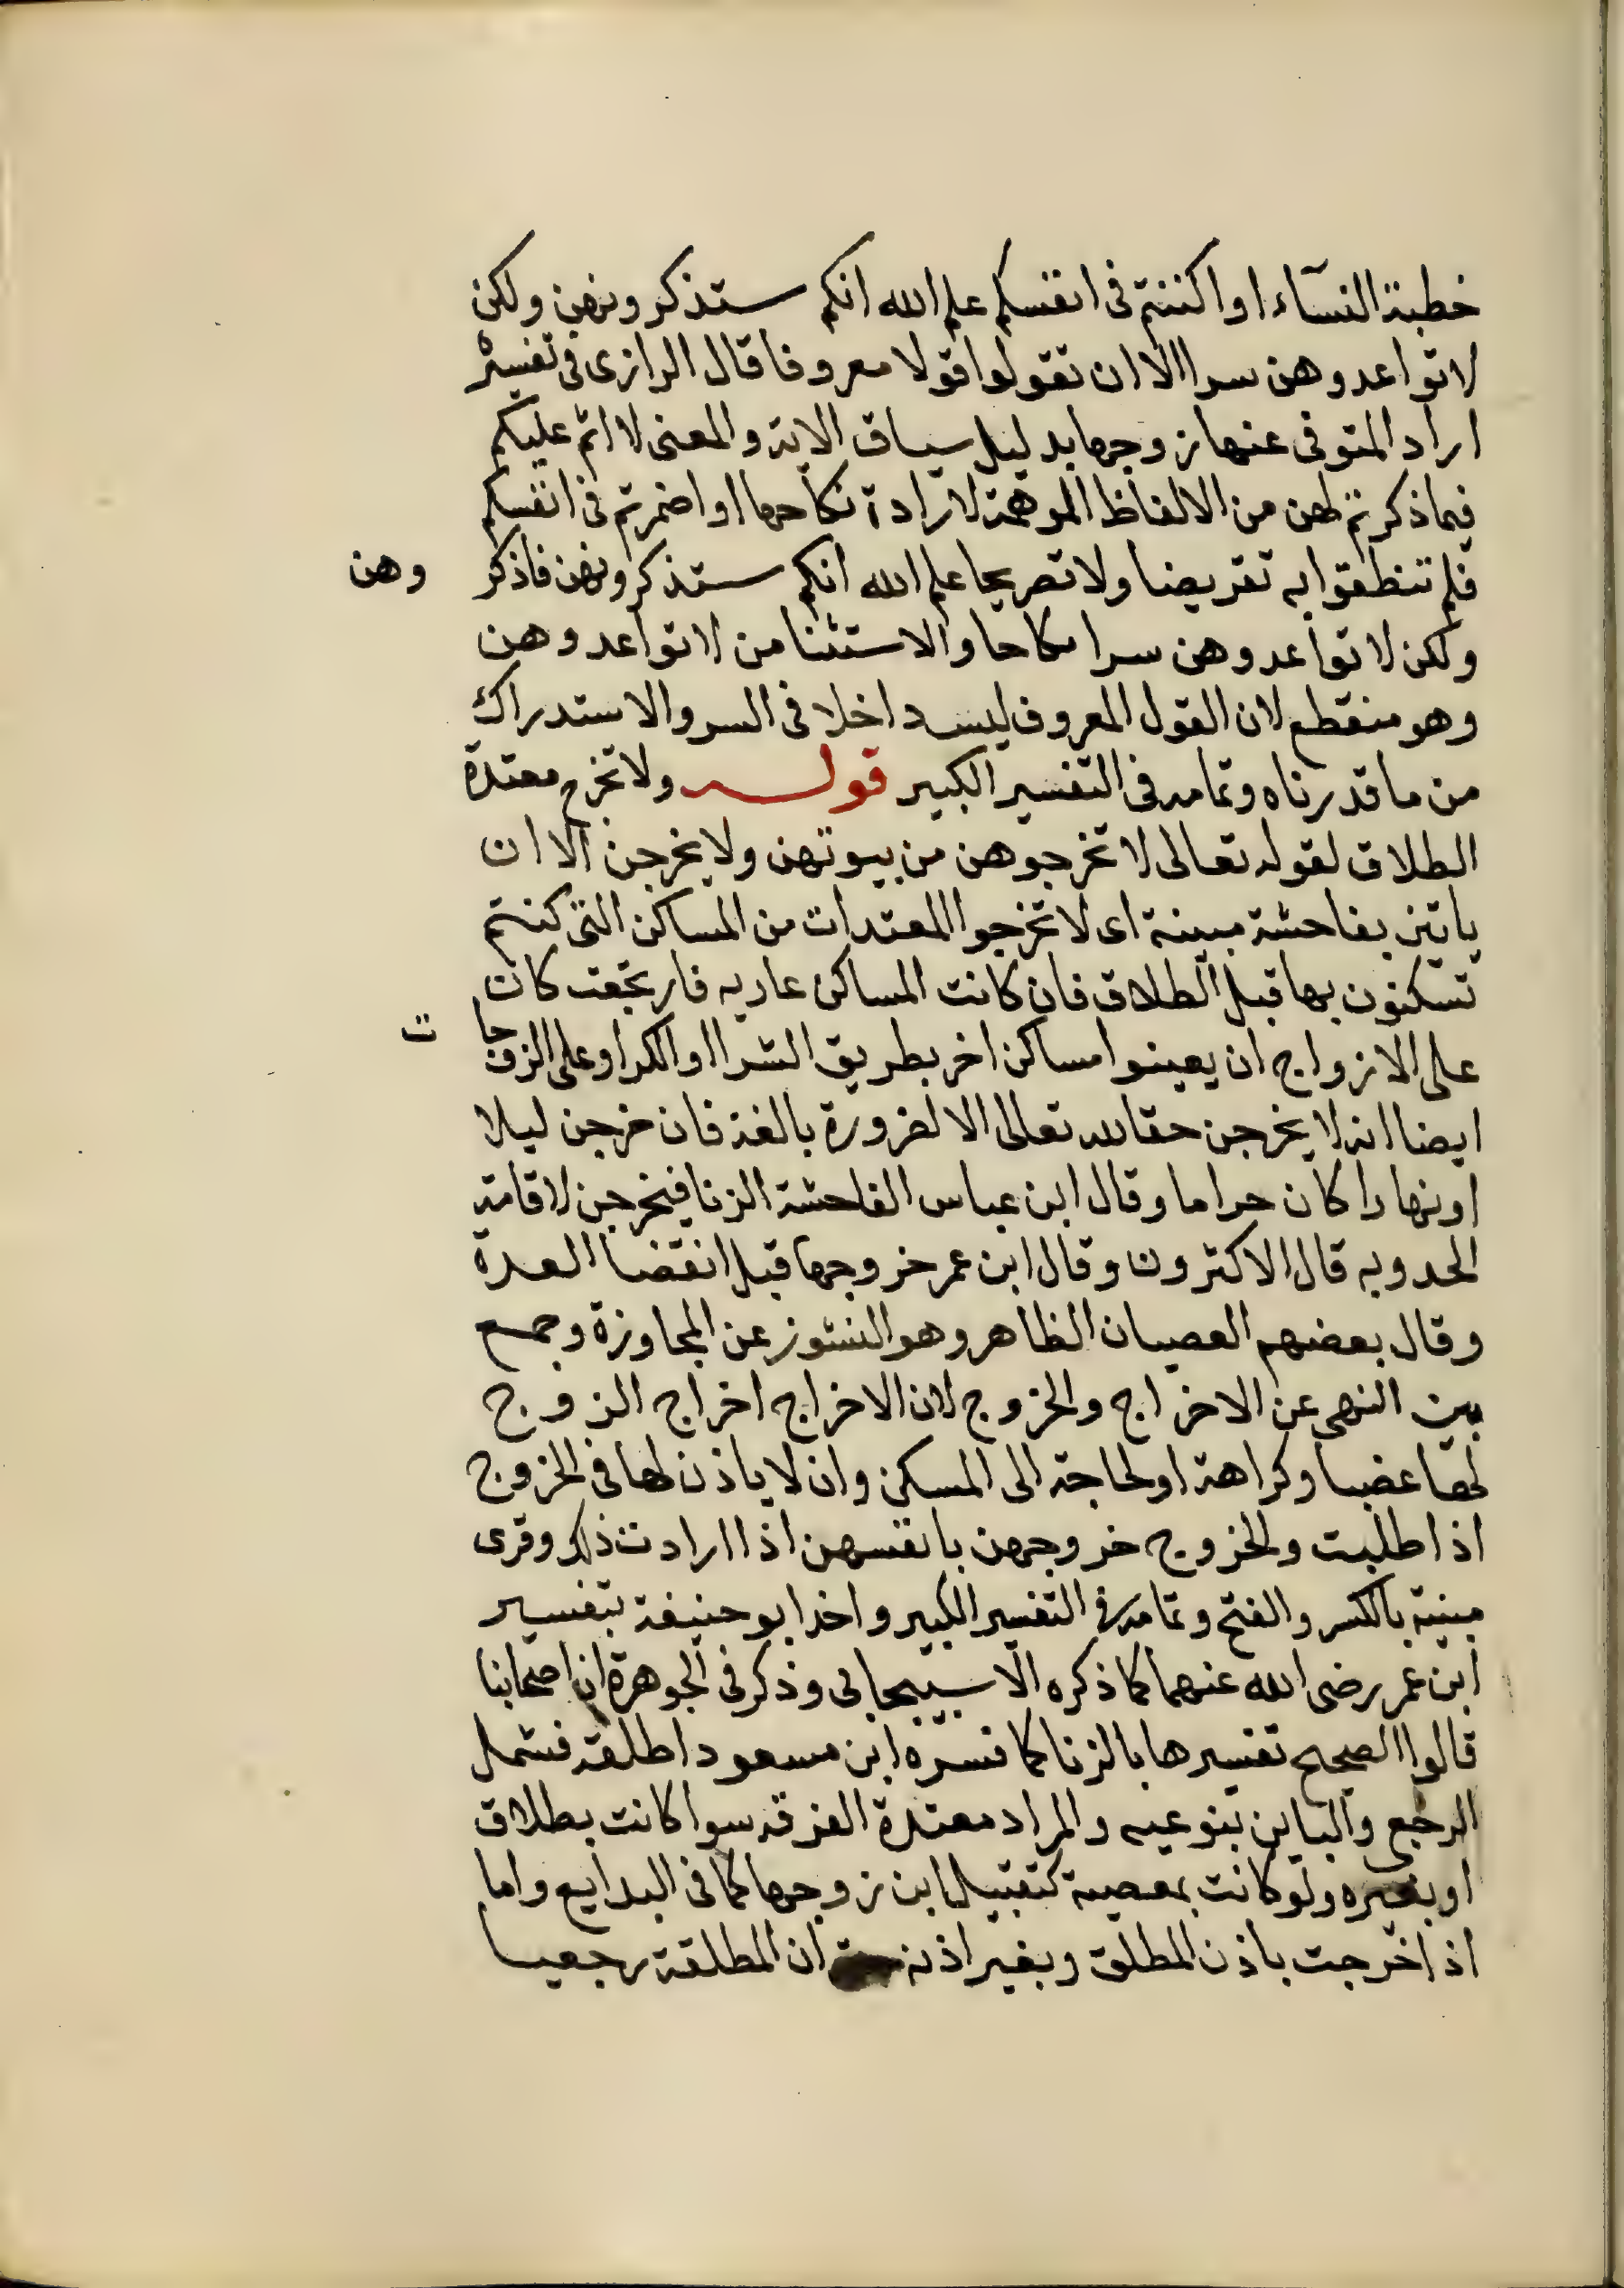 خطبة النسآء او اكننتم فى انفسكم علم الله انكم ستذكرونهن ولكن
لا تواعدوهن سرا الا ان تقولوا قولا معروفا قال الرازى فى تفسيره
اراد المتوفى عنها زوجها بدليل سياق الاية والمعنى لا اثم عليكم
فيما ذكرتم لهن من الالفاظ الموهمة لارادة نكاحها او اضمرتم فى انفسكم
فلم تنطقوا به تعريضا ولا تصريحا علم الله انكم ستذكرونهن فاذكر وهن
ولكن لا تواعدوهن سرا نكاحا والاستثنا من لا تواعدوهن
وهو منقطع لان القول المعروف ليس داخلا فى السر والاستدراك
من ما قدرناه وتمامه فى التفسير الكبير قوله ولا تخرج معتدة
الطلاق لقوله تعالى لا تخرجوهن من بيوتهن ولا يخرجن الا ان
ياتين بفاحشة مبينة اى لا تخرجوا المعتدات من المساكن التى كنتم
تسكنون بها قبل الطلاق فان كانت المساكن عاريه فارتجعت كان
على الازواج ان يعينوا مساكن اخر بطريق الشرا او الكرا وعلى الزوجات
ايضا انه لا يخرجن حقا لله تعالى الا لضرورة بالغة فان خرجن ليلا
او نهارا كان حراما وقال ابن عباس الفاحشة الزنا فيخرجن لاقامة
الحد وبه قال الاكثرون وقال ابن عمر خروجها قبل انقضا العدة
وقال بعضهم العصيان الظاهر وهو النشوز عن المجاوزة وجمع
بين النهى عن الاخراج والخروج لان الاخراج اخراج الزوج
لها غضبا وكراهة او لحاجة الى المسكن وان لا ياذن لها فى الخروج
اذا طلبت والخروج خروجهن بانفسهن اذا ارادت ذلك وقرى
مبينة بالكسر والفتح وتمامه فى التفسير الكبير واخذ ابو حنيفة بتفسير
ابن عمر رضى الله عنهما كما ذكره الاسبيجابى وذكر فى الجوهرة ان اصحابنا
قالوا الصحيح تفسيرها بالزنا كما فسره ابن مسعود اطلقه فشمل
الرجعى والباين بنوعيه والمراد معتدة الفرقه سوا كانت بطلاق
او بغيره ولو كانت بمعصية كتقبيل ابن زوجها كما فى البدايع واما
اذا خرجت باذن المطلق وبغير اذنه ان المطلقة رجعيا